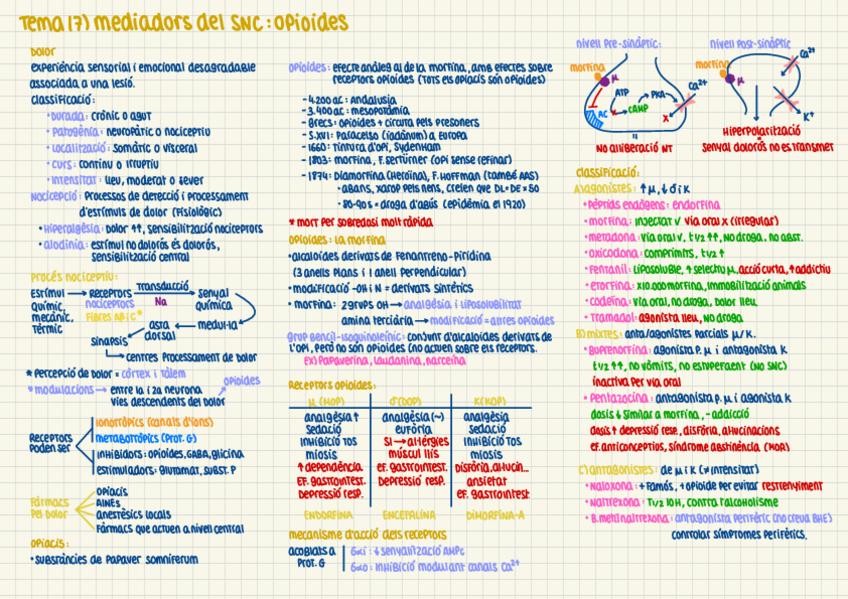 Tema (7) mediadors del SNC: Opioides
DOLOR
experiència sensorial i emocional desagradable
associada a una lesió.
classificació:
• Durada: crònic o agut
• Patogènia: neuropàtic o nociceptiu
• Localització: somàtic o visceral
• Curs: continu o irruptiu
• Intensitat: lleu, moderat o sever
Nocicepció: Processos de detecció i processament
d'estímuls de dolor (fisiològic)
• Hiperalgèsia: dolor ↑↑, sensibilització nociceptors
• alodinia: estímul no dolorós és dolorós,
sensibilització central
Procés nociceptiu:
Estímul → Receptors → Transducció → senyal
químic, nociceptors Na química
mecànic, Fibres Aβ i C*
tèrmic
sinapsis ← asta dorsal ← medul·la
→ centres Processament de dolor
* percepció de dolor = còrtex i tàlem
* modulacions → entre 1a i 2a neurona
vies descendents del dolor → opioides
Receptors poden ser
ionotròpics (canals d'ions)
metabotròpics (Prot. G)
inhibidors: opioides, GABA, glicina
estimuladors: glutamat, subst. P
Fàrmacs pel dolor
opiacis
AINEs
anestèsics locals
Fàrmacs que actuen a nivell central
opiacis:
• substàncies de Papaver somniferum
opioides: efecte anàleg al de la morfina, amb efectes sobre
receptors opioides (tots els opiacis són opioides)
- 4.200 ac: Andalusia
- 3.400 ac: mesopotàmia
- Grecs: opioides + cicuta pels presoners
- S.XVI: Paracelso (laudànum) a Europa
- 1660: tintura d'opi, Sydenham
- 1803: morfina, F. Sertürner (opi sense refinar)
- 1874: Diamorfina (Heroïna), F. Hoffman (també AAS)
• abans, xarop pels nens, creien que DL = DE × 50
• 80-90s = droga d'abús (epidèmia el 1920)
* mort per sobredosi molt ràpida
opioides: la morfina
• alcaloides derivats de Fenantreno-Piridina
(3 anells plans i 1 anell perpendicular)
• modificació -OH i N = derivats sintètics
• morfina: 2 grups OH → analgèsia i liposolubilitat
amina terciària → modificació = altres opioides
Grup Bencil-isoquinoleínic: conjunt d'alcaloides derivats de
l'opi, però no són opioides (no actuen sobre els receptors.
Ex) Papaverina, laudanina, narceïna
Receptors opioides:
μ (MOP) δ (DOP) K (KOP)
analgèsia↑ analgèsia (~) analgèsia
sedació eufòria sedació
inhibició tos SI → al·lèrgies inhibició tos
miosis múscul llis miosis
↑ dependència EF. gastrointest. Disfòria, al·lucin...
EF. gastrointest. Depressió resp. ansietat
Depressió resp. EF. gastrointest
ENDORFINA ENCEFALINA DIMORFINA-A
mecanisme d'acció dels receptors
acoblats a Prot. G
Gαi: ↓ senyalització AMPc
Gαo: inhibició modulant canals Ca²⁺
nivell Pre-sinàptic:
morfina μ
ATP PKA Ca²⁺
AC cAMP x
NO alliberació NT
nivell Post-sinàptic
morfina μ Ca²⁺
K⁺
Hiperpolarització
senyal dolorós no es transmet
classificació:
A) agonistes: ↑ μ, ↓ δ i K
• Pèptids endògens: endorfina
• morfina: injectar ✓ via oral x (irregular)
• metadona: via oral ✓, t1/2 ↑↑, no droga, no abst.
• oxicodona: comprimits, t1/2 ↑
• Fentanil: liposoluble, ↑ selectiu μ, acció curta, ↑ addictiu
• etorfina: x10.000 morfina, immobilització animals
• codeïna: via oral, no droga, dolor lleu
• Tramadol: agonista lleu, no droga
B) mixtes: anta/agonistes parcials μ/K.
• Buprenorfina: agonista p. μ i antagonista K
t1/2 ↑↑, no vòmits, no estupefaent (no SNC)
inactiva per via oral
• Pentazocina: antagonista p. μ i agonista K
dosis ↓ similar a morfina, - addicció
dosis ↑ depressió resp., disfòria, al·lucinacions
ef. anticonceptius, síndrome abstinència (MOR)
C) antagonistes: de μ i K (≠ intensitat)
• Naloxona: + famós, + opioide per evitar restrenyiment
• Naltrexona: T1/2 10H, contra l'alcoholisme
• B. metilnaltrexona: antagonista perifèric (no creua BHE)
controlar símptomes perifèrics.